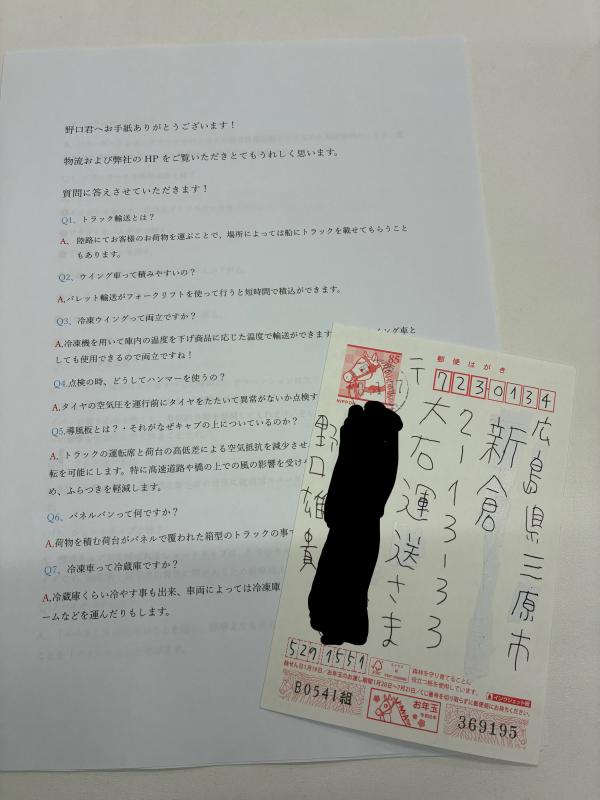 野口君へお手紙ありがとうございます！
物流および弊社の HP をご覧いただきとてもうれしく思います。
質問に答えさせていただきます！
Q1、トラック輸送とは？
A、陸路にてお客様のお荷物を運ぶことで、場所によっては船にトラックを載せてもらうこと
もあります。
Q2、ウイング車って積みやすいの？
A,パレット輸送がフォークリフトを使って行うと短時間で積込ができます。
Q3、冷凍ウイングって両立ですか？
A,冷凍機を用いて庫内の温度を下げ商品に応じた温度で輸送ができます
ング車と
しても使用できるので両立ですね！
Q4.点検の時、どうしてハンマーを使うの？
A,タイヤの空気圧を運行前にタイヤをたたいて異常がないか点検す
Q5,導風板とは？・それがなぜキャブの上についているのか？
A, トラックの運転席と荷台の高低差による空気抵抗を減少させ
転を可能にします。特に高速道路や橋の上での風の影響を受けや
め、ふらつきを軽減します。
Q6、パネルバンって何ですか？
A,荷物を積む荷台がパネルで覆われた箱型のトラックの事で
Q7、冷凍車って冷蔵庫ですか？
A,冷蔵庫くらい冷やす事も出来、車両によっては冷凍庫
ームなどを運んだりもします。
郵便はがき
85
NIPPON
〒
7230134
広島県三原市
新倉
2-13-33
大右運送さま
野口雄貴
5291551
FSC
森林を守り育てることに
役立つ紙を使用しています。
抽せん日1月19日／お年玉のお渡し期間1月20日～7月21日／くじ番号を切り取らずに郵便窓口にお持ちください。
インクジェット紙
B0541組
お年玉
369195